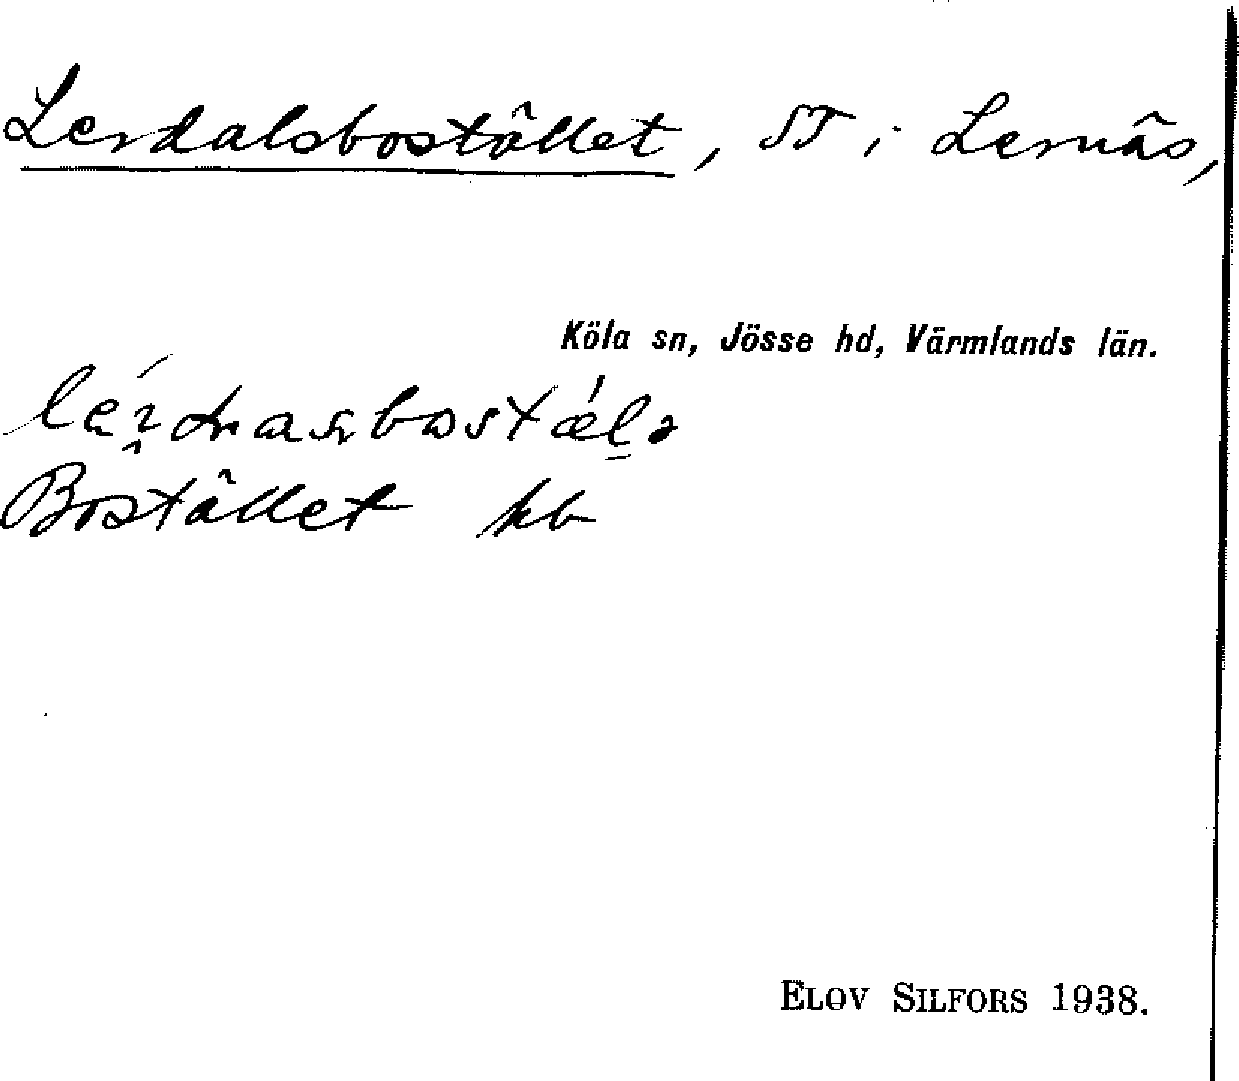 Lerdalsbostället, ST i Lernäs,
Köla sn, Jösse hd, Värmlands län.
Bostället kb
ELOV SILFORS 1938.